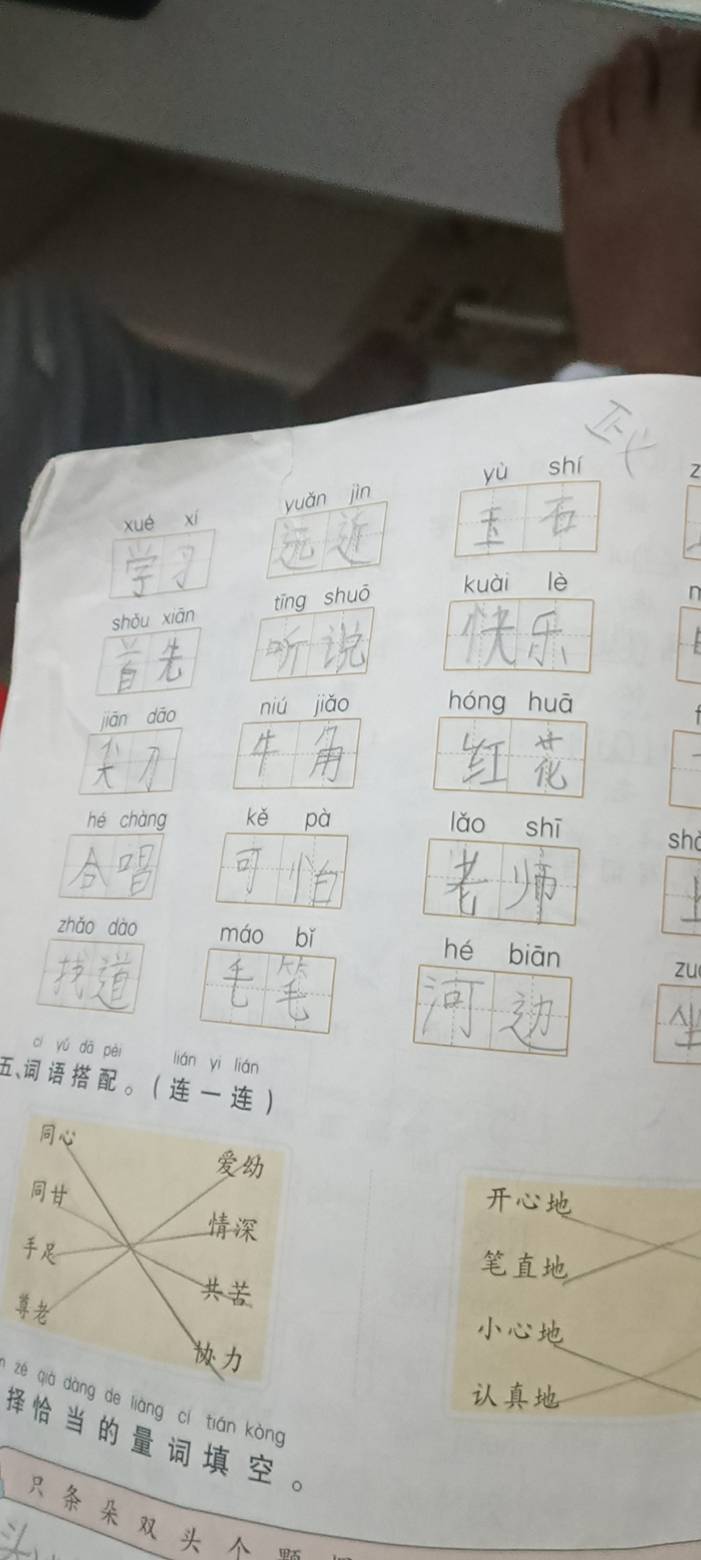 xué xí yuǎn jìn yù shí
学习 远近 玉石
shǒu xiān tīng shuō kuài lè
首先 听说 快乐
jiān dāo niú jiǎo hóng huā
尖刀 牛角 红花
hé chàng kě pà lǎo shī
合唱 可怕 老师
zhǎo dào máo bǐ hé biān
找道 毛笔 河边
坐
cí yǔ dā pèi lián yi lián
五、词语搭配。(连一连)
同心 爱幼
同甘 情深
手足 共苦
尊老 协力
开心地
笔直地
小心地
认真地
zé qià dàng de liàng cí tián kòng
择恰当的量词填空。
只 条 朵 双 头 个 颗
头